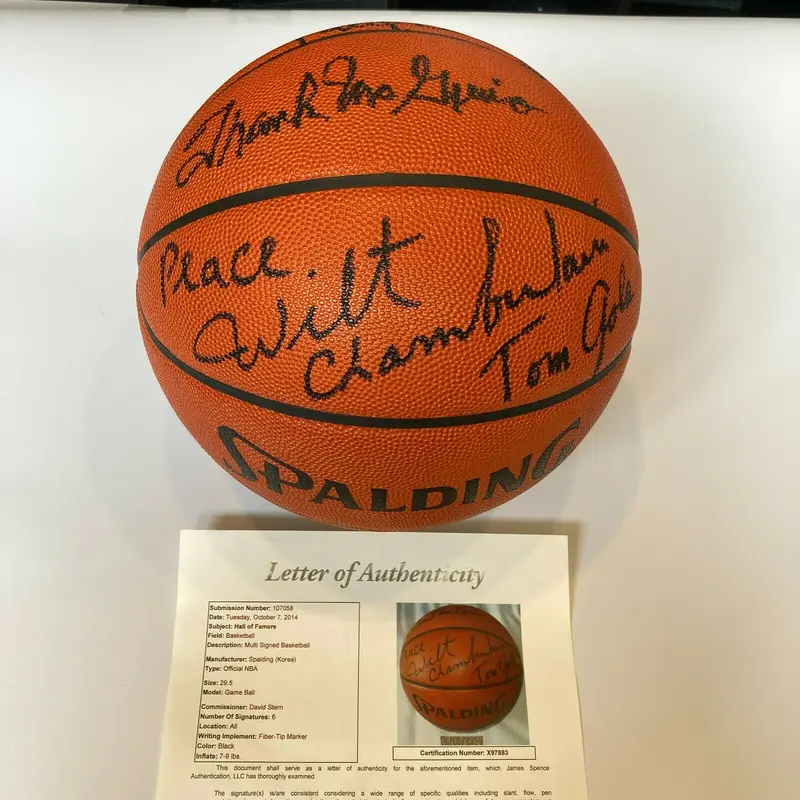 Thank
Peace.
Wilt
Chamberlain
Tom Gola
SPALDING
Letter of Authenticity
Submission Number: 107058
Date: Tuesday, October 7, 2014
Subject: Hall of Famers
Field: Basketball
Description: Multi Signed Basketball
Manufacturer: Spalding (Korea)
Type: Official NBA
Size: 29.5
Model: Game Ball
Commissioner: David Stern
Number Of Signatures: 6
Location: All
Writing Implement: Fiber-Tip Marker
Color: Black
Inflate: 7-9 lbs.
Peace.
Wilt
Chamberlain
Tom Gola
SPALDING
Certification Number: X97883
This document shall serve as a letter of authenticity for the aforementioned item, which James Spence
Authentication, LLC has thoroughly examined.
The signature(s) is/are consistent considering a wide range of specific qualities including slant, flow, pen